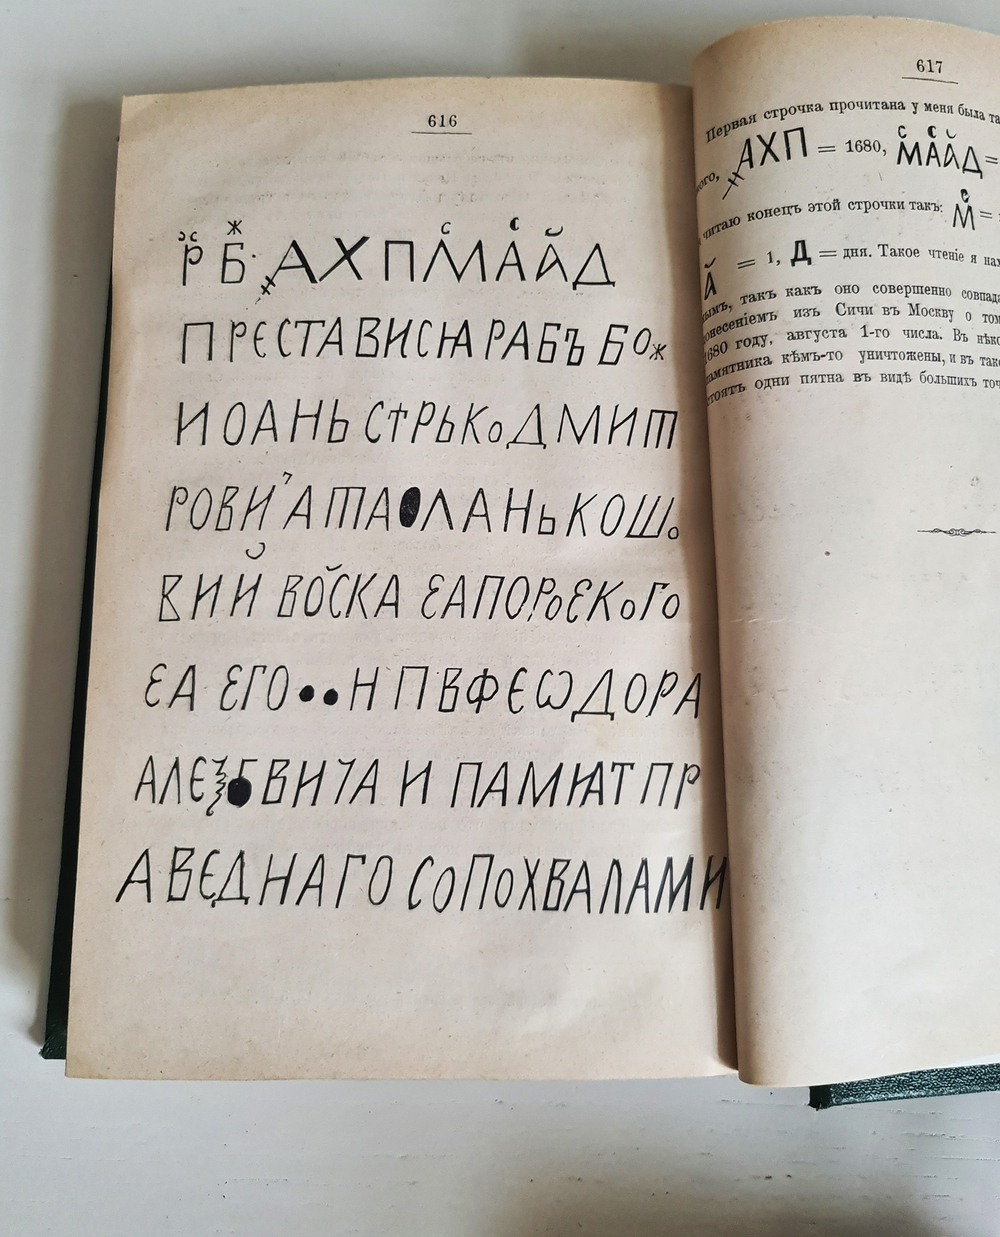 616
Р Б҃ж. ҂АХП М҃с А҃с А҃ Д
ПРЕСТАВИСꙖ РАБЪ БОЖ
ИОАНЬ СТРЬКО ДМИТ
РОВИЧА ТА●ЛАНЬ КОШО
ВИЙ ВОЙСКА ЄАПОРОЄКОГО
ЄА ЄГО●●Н ПВФЄѠДОРА
АЛЄѮ●ЄВИЧА И ПАМꙖТ ПР
АВЄДНАГО СО ПОХВАЛАМИ
617
Первая строчка прочитана у меня была та
ого, ҂АХП = 1680, М҃с А҃с А҃ Д =
читаю конецъ этой строчки такъ: М҃с =
А҃ = 1, Д = дня. Такое чтеніе я нах
ымъ, такъ какъ оно совершенно совпада
онесеніемъ изъ Сичи въ Москву о том
1680 году, августа 1-го числа. Въ нѣко
памятника кѣмъ-то уничтожены, и въ тако
стоятъ одни пятна въ видѣ большихъ точ